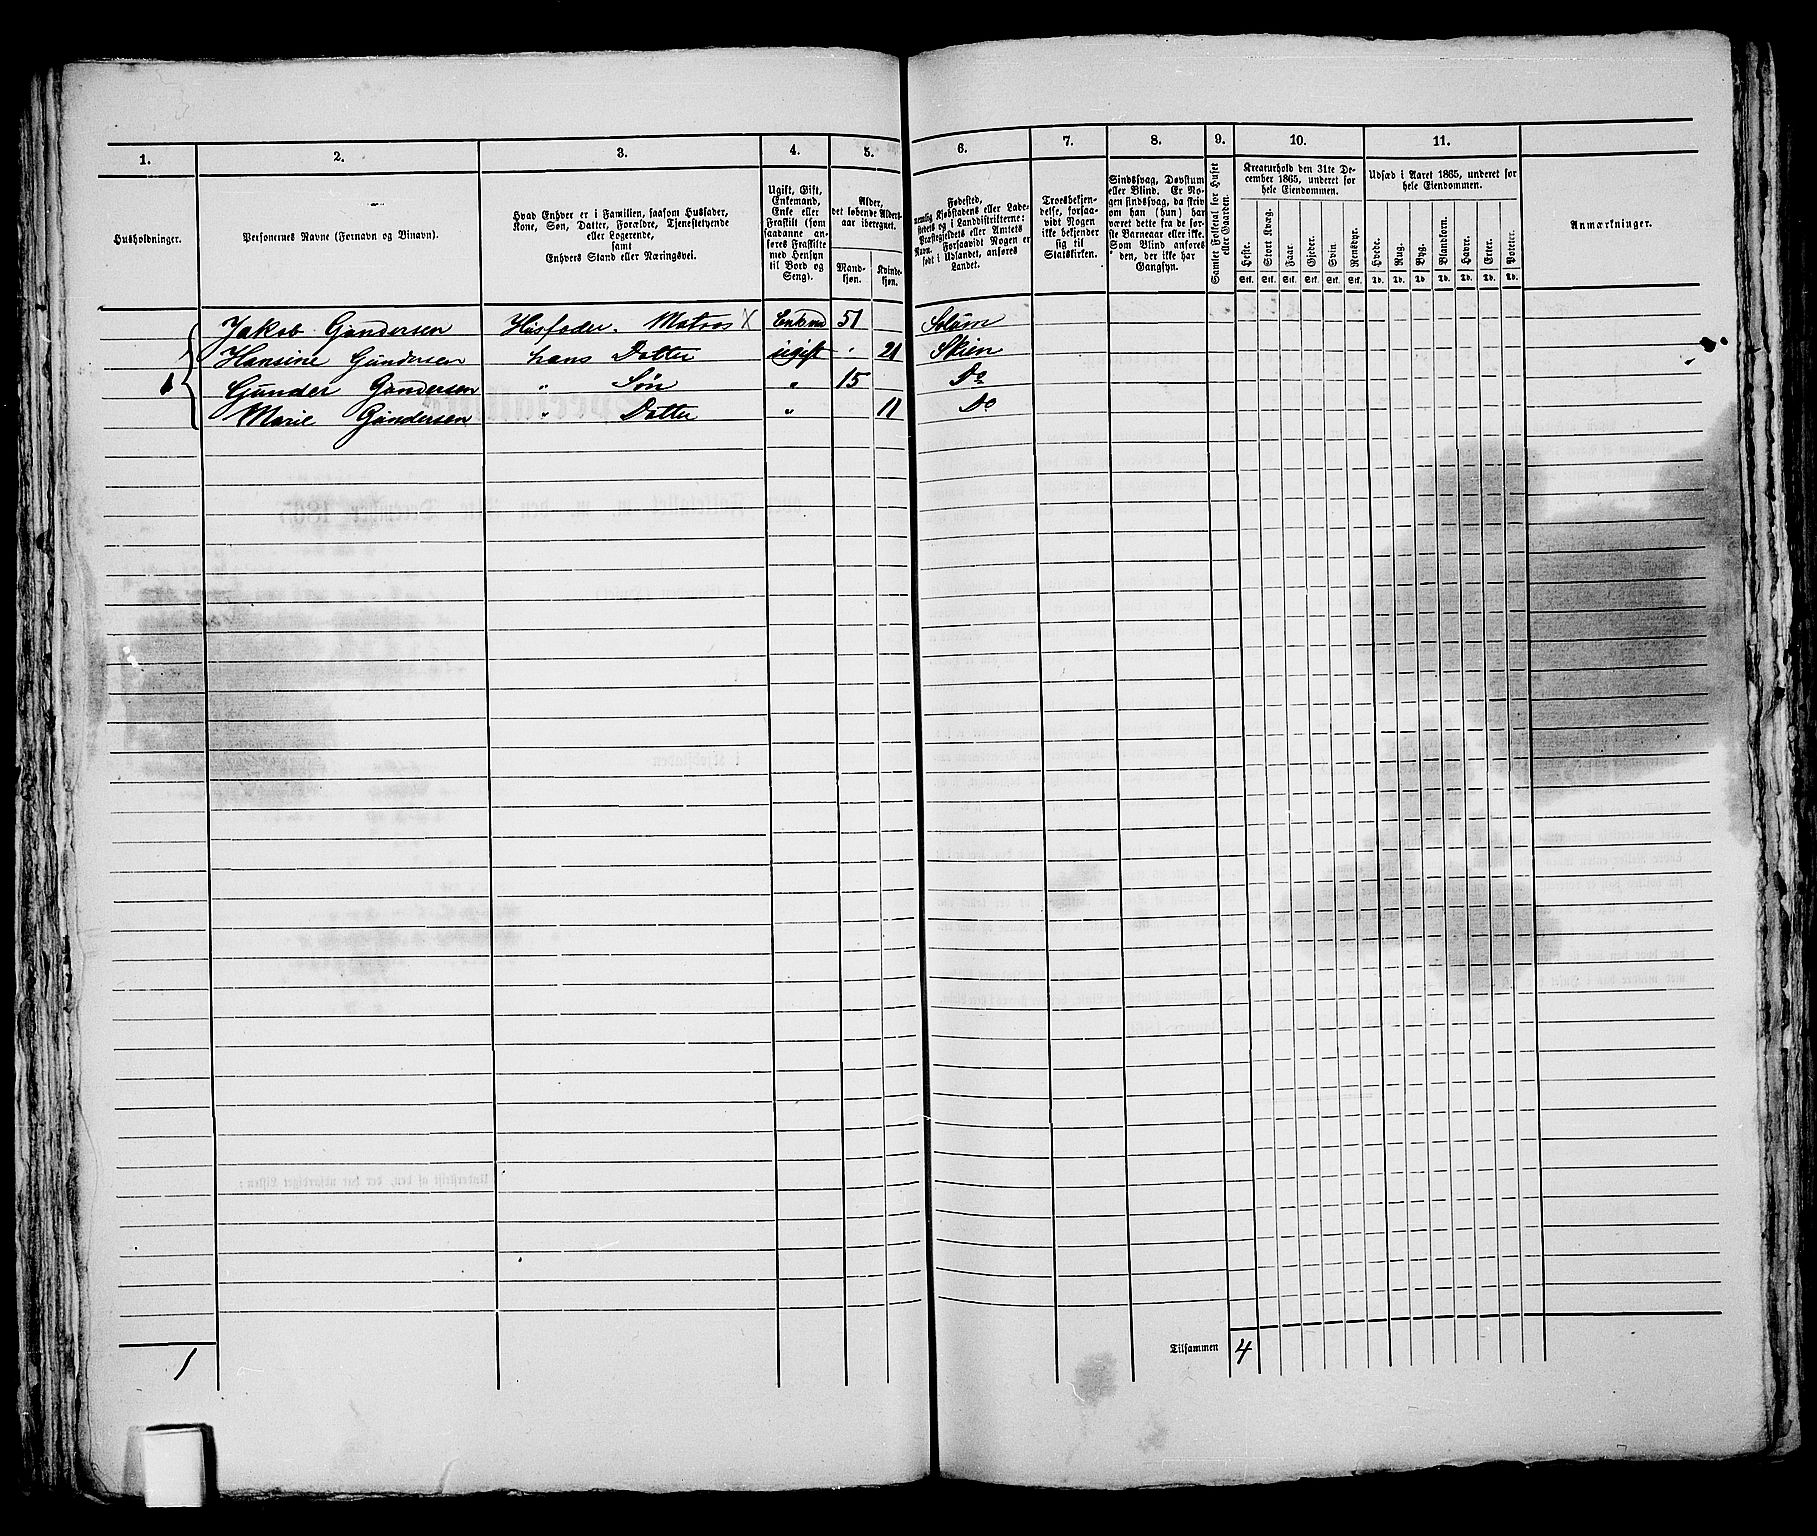 1. 2. 3. 4. 5. 6. 7. 8. 9. 10. 11.
Husholdninger.
Personernes Navne (Fornavn og Binavn).
Hvad Enhver er i Familien, saasom Husfader,
Kone, Søn, Datter, Forældre, Tjenestetyende
eller Logerende,
samt
Enhvers Stand eller Næringsvei.
Ugift, Gift,
Enkemand,
Enke eller
Fraskilt (som
saadanne an-
føres Fraskilte
med Hensyn
til Bord og
Seng).
Alder,
det løbende Alders-
aar iberegnet.
Mand-
kjøn.
Kvinde-
kjøn.
Fødested,
nemlig Kjøbstadens eller Lade-
stedets og i Landdistrikterne:
Præstegjeldets eller Amtets
Navn. Forsaavidt Nogen er
født i Udlandet, anføres
Landet.
Troesbekjen-
delse, forsaa-
vidt Nogen
ikke bekjender
sig til
Statskirken.
Sindssvag, Døvstum
eller Blind. Er No-
gen sindssvag, da skriv
om han (hun) har
været dette fra de før-
ste Barneaar eller ikke.
Som Blind anføres
den, der ikke har
Gangsyn.
Samlet Folketal for Huset
eller Gaarden.
Kreaturhold den 31te De-
cember 1865, underet for
hele Eiendommen.
Heste. Stort Kvæg. Faar. Gjeder. Svin. Rensdyr.
Stk. Stk. Stk. Stk. Stk. Stk.
Udsæd i Aaret 1865, underet for
hele Eiendommen.
Hvede. Rug. Byg. Blandkorn. Havre. Erter. Poteter.
Td. Td. Td. Td. Td. Td. Td.
Anmærkninger.
Jakob Gundersen Husfader. Matros X Enkemd 51 Solum
Hansine Gundersen hans Datter ugift . 21 Skien
1 Gunder Gundersen " Søn " 15 Do
Marie Gundersen " Datter " 11 Do
1 Tilsammen 4